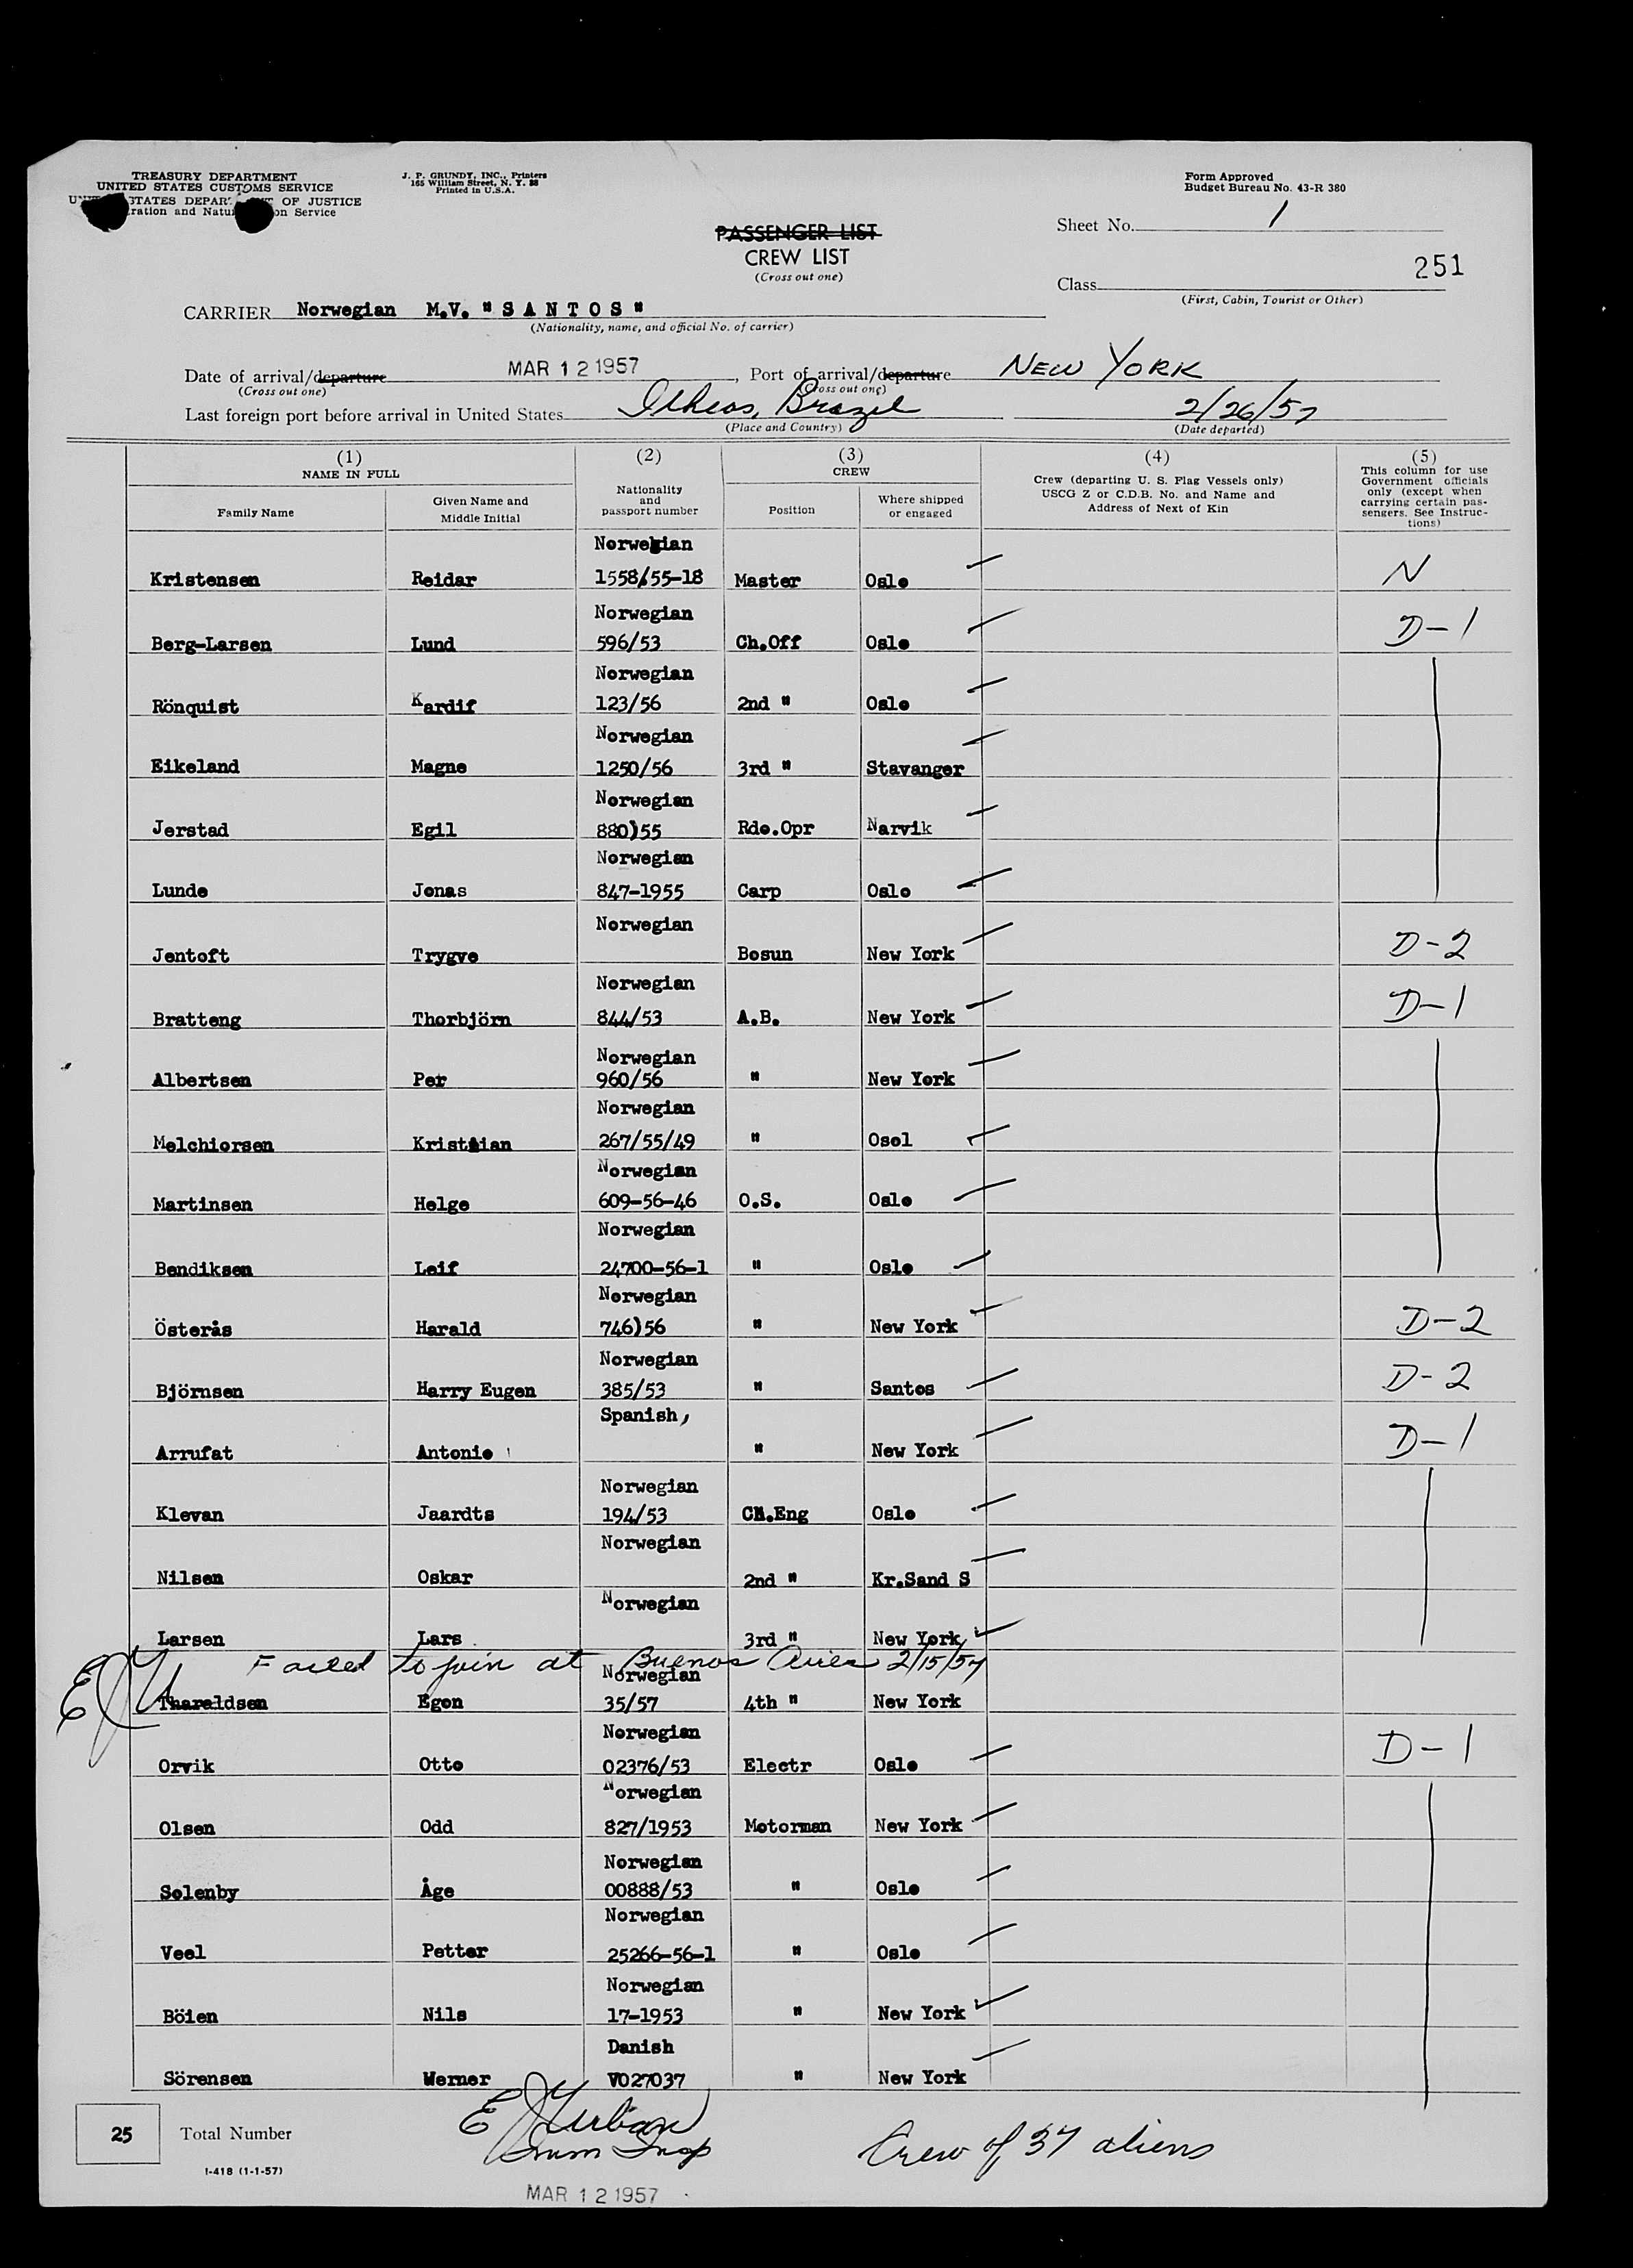 TREASURY DEPARTMENT
UNITED STATES CUSTOMS SERVICE
STATES DEPAR OF JUSTICE
ration and Natu on Service
J. P. GRUNDY, INC., Printers
165 William Street, N. Y. 38
Printed in U.S.A.
Form Approved
Budget Bureau No. 43-R 380
PASSENGER LIST
CREW LIST
(Cross out one)
Sheet No. 1
251
Class
(First, Cabin, Tourist or Other)
CARRIER Norwegian M.V. "SANTOS"
(Nationality, name, and official No. of carrier)
Date of arrival/departure MAR 12 1957, Port of arrival/departure NEW YORK
(Cross out one) (Cross out one)
Last foreign port before arrival in United States Ilheos, Brazil 2/26/57
(Place and Country) (Date departed)
(1) NAME IN FULL
Family Name
Given Name and Middle Initial
(2) Nationality and passport number
(3) CREW
Position
Where shipped or engaged
(4) Crew (departing U. S. Flag Vessels only) USCG Z or C.D.B. No. and Name and Address of Next of Kin
(5) This column for use Government officials only (except when carrying certain passengers. See Instructions)
Norwegian
Kristensen Reidar 1558/55-18 Master Oslo N
Norwegian
Berg-Larsen Lund 596/53 Ch.Off Oslo D-1
Norwegian
Rönquist Kardif 123/56 2nd " Oslo
Norwegian
Eikeland Magne 1250/56 3rd " Stavanger
Norwegian
Jerstad Egil 880)55 Rdo.Opr Narvik
Norwegian
Lunde Jonas 847-1955 Carp Oslo
Norwegian
Jentoft Trygve Bosun New York D-2
Norwegian
Bratteng Thorbjörn 844/53 A.B. New York D-1
Norwegian
Albertsen Per 960/56 " New York
Norwegian
Melchiorsen Kristian 267/55/49 " Osol
Norwegian
Martinsen Helge 609-56-46 O.S. Oslo
Norwegian
Bendiksen Leif 24700-56-1 " Oslo
Norwegian
Österås Harald 746)56 " New York D-2
Norwegian
Björnsen Harry Eugen 385/53 " Santos D-2
Spanish,
Arrufat Antonio " New York D-1
Norwegian
Klevan Jaardts 194/53 Ch.Eng Oslo
Norwegian
Nilsen Oskar 2nd " Kr.Sand S
Norwegian
Larsen Lars 3rd " New York
EJU Failed to join at Buenos Aires 2/15/57
Norwegian
Tharaldsen Egon 35/57 4th " New York
Norwegian
Orvik Otto 02376/53 Electr Oslo D-1
Norwegian
Olsen Odd 827/1953 Motorman New York
Norwegian
Solenby Åge 00888/53 " Oslo
Norwegian
Veel Petter 25266-56-1 " Oslo
Norwegian
Böien Nils 17-1953 " New York
Danish
Sörensen Werner V027037 " New York
25 Total Number
E J Urban
Imm Insp
Crew of 37 aliens
I-418 (1-1-57)
MAR 12 1957